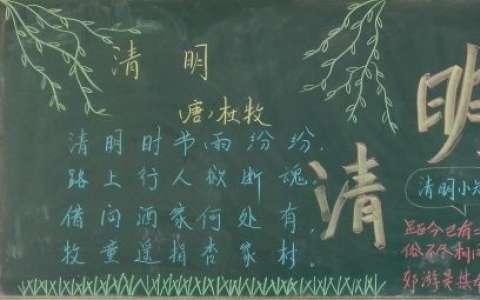 清 明
唐,杜牧
清明时节雨纷纷.
路上行人欲断魂.
借问酒家何处有,
牧童遥指杏家村.
清
明
清明小
距今已有二
俗不尽相同
郊游是其